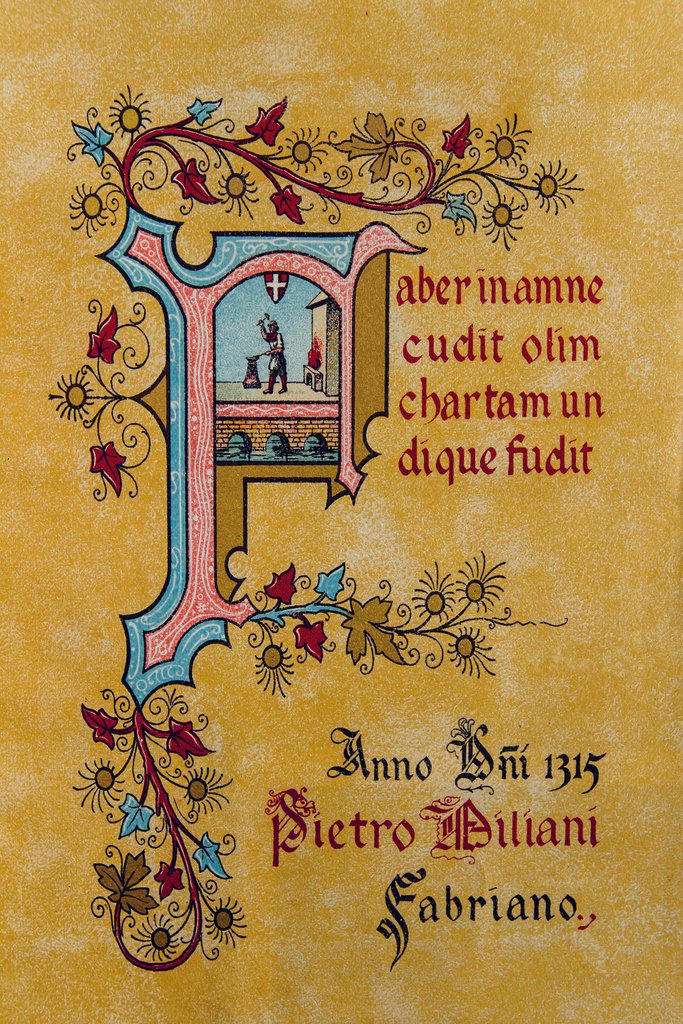 Faber in amne
cudit olim
chartam un
dique fudit
Anno Dñi 1315
Pietro Miliani
Fabriano.,